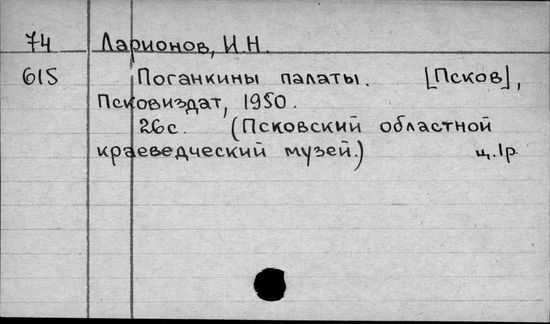 74 Ларионов, И.Н.
615 Поганкины палаты. [Псков],
Псковиздат, 1950.
26с. (Псковский областной
краеведческий музей.) ц.1р.